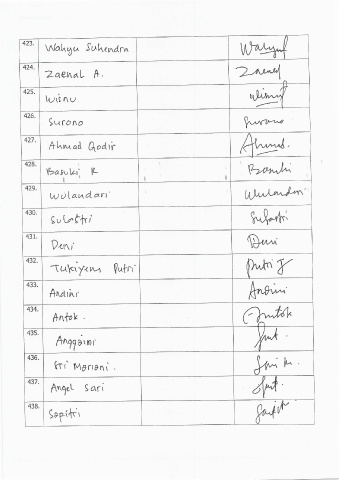 423. Wahyu Suhendra Wahyu
424. Zaenal A. Zaenal
425. Wisnu
426. Surono Surono
427. Ahmad Qodir Ahmad.
428. Basuki R Basuki
429. Wulandari Wulandari
430. Sulastri Sulastri
431. Deni Deni
432. Tukiyem Putri Putri
433. Andini Andini
434. Antok. Antok
435. Anggaini
436. Sri Mariani. Sri M.
437. Angel Sari
438. Sapitri Sapitri